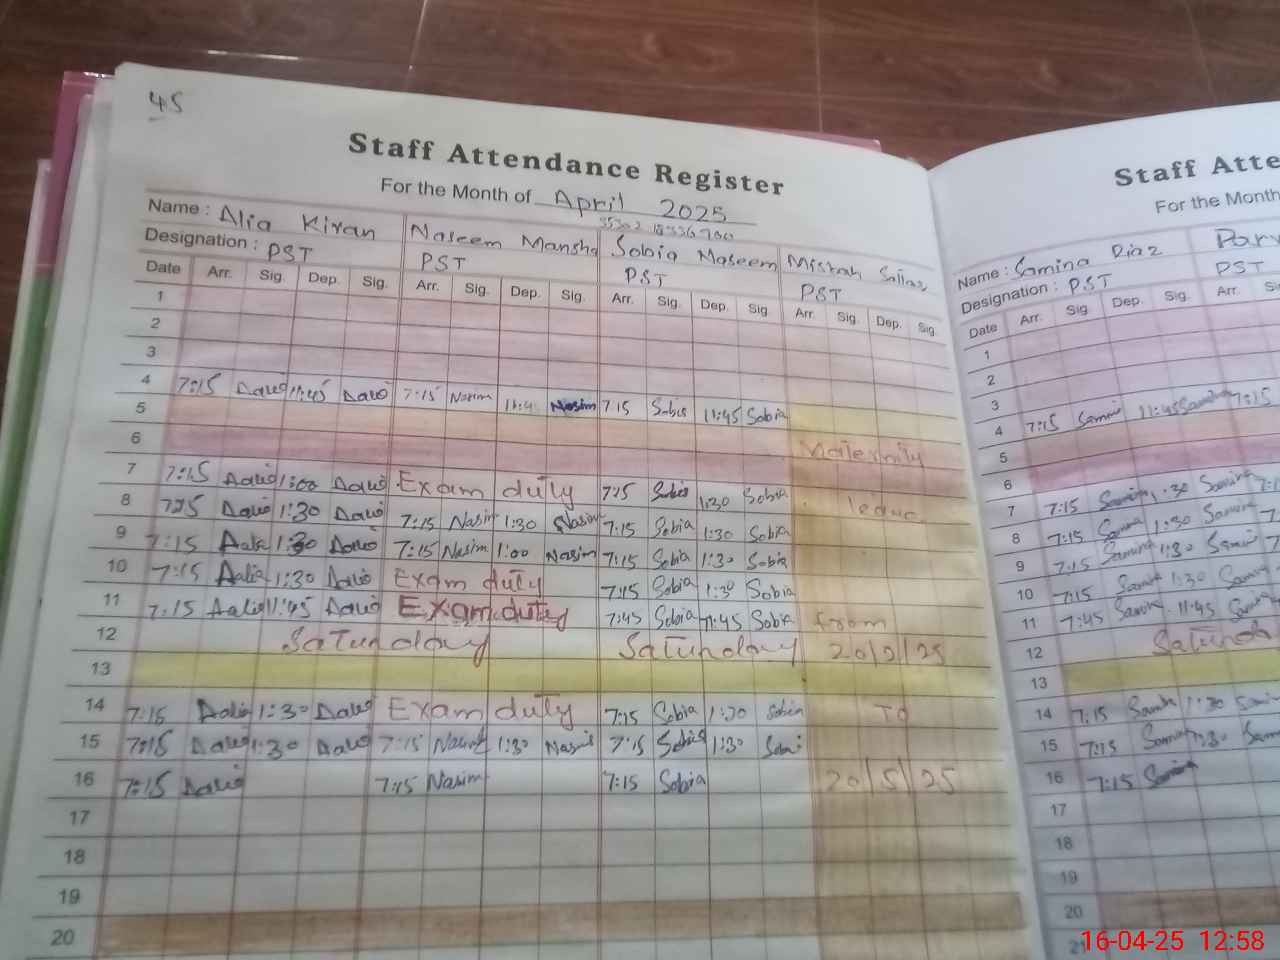 45
Staff Attendance Register
For the Month of April 2025
Name : Alia Kiran Naseem Mansha Sobia Naseem Misbah
Designation : PST PST PST PST
Date Arr. Sig. Dep. Sig. Arr. Sig. Dep. Sig. Arr. Sig. Dep. Sig. Arr. Sig. Dep. Sig.
1
2
3
4 7:15 11:45 7:15 Nasim 11:4 Nasim 7:15 Sobia 11:45 Sobia
5
6 Maternity
7 7:15 1:00 Exam duty 7:15 Sobia 1:30 Sobia leave
8 7:15 1:30 7:15 Nasim 1:30 Nasim 7:15 Sobia 1:30 Sobia
9 7:15 Aalia 1:30 7:15 Nasim 1:00 Nasim 7:15 Sobia 1:30 Sobia
10 7:15 Aalia 1:30 Exam duty 7:15 Sobia 1:30 Sobia
11 7:15 Aalia 11:45 Exam duty 7:45 Sobia 11:45 Sobia from
12 Saturday Saturday 20/2/25
13
14 7:15 Aalia 1:30 Exam duty 7:15 Sobia 1:30 Sobia To
15 7:15 1:30 7:15 Nasim 1:30 Nasim 7:15 Sobia 1:30 Sobia
16 7:15 7:15 Nasim 7:15 Sobia 20/5/25
17
18
19
20
Staff Atte
For the Month
Name : Samina Riaz Parv
Designation : PST PST
Date Arr. Sig. Dep. Sig. Arr.
1
2
3
4 7:15 Samina 11:45 Samina 7:15
5
6
7 7:15 Samina 1:30 Samina
8 7:15 Samina 1:30 Samina
9 7:15 Samina 1:30 Samina
10 7:15 Samina 1:30 Samina
11 7:45 Samina 11:45 Samina
12 Saturda
13
14 7:15 Samina 1:30 Samina
15 7:15 Samina 1:30 Sam
16 7:15 Samina
17
18
19
20
16-04-25 12:58